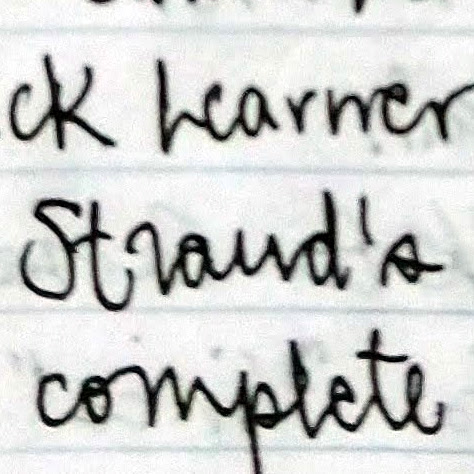 ck Learner
Strand's
complete